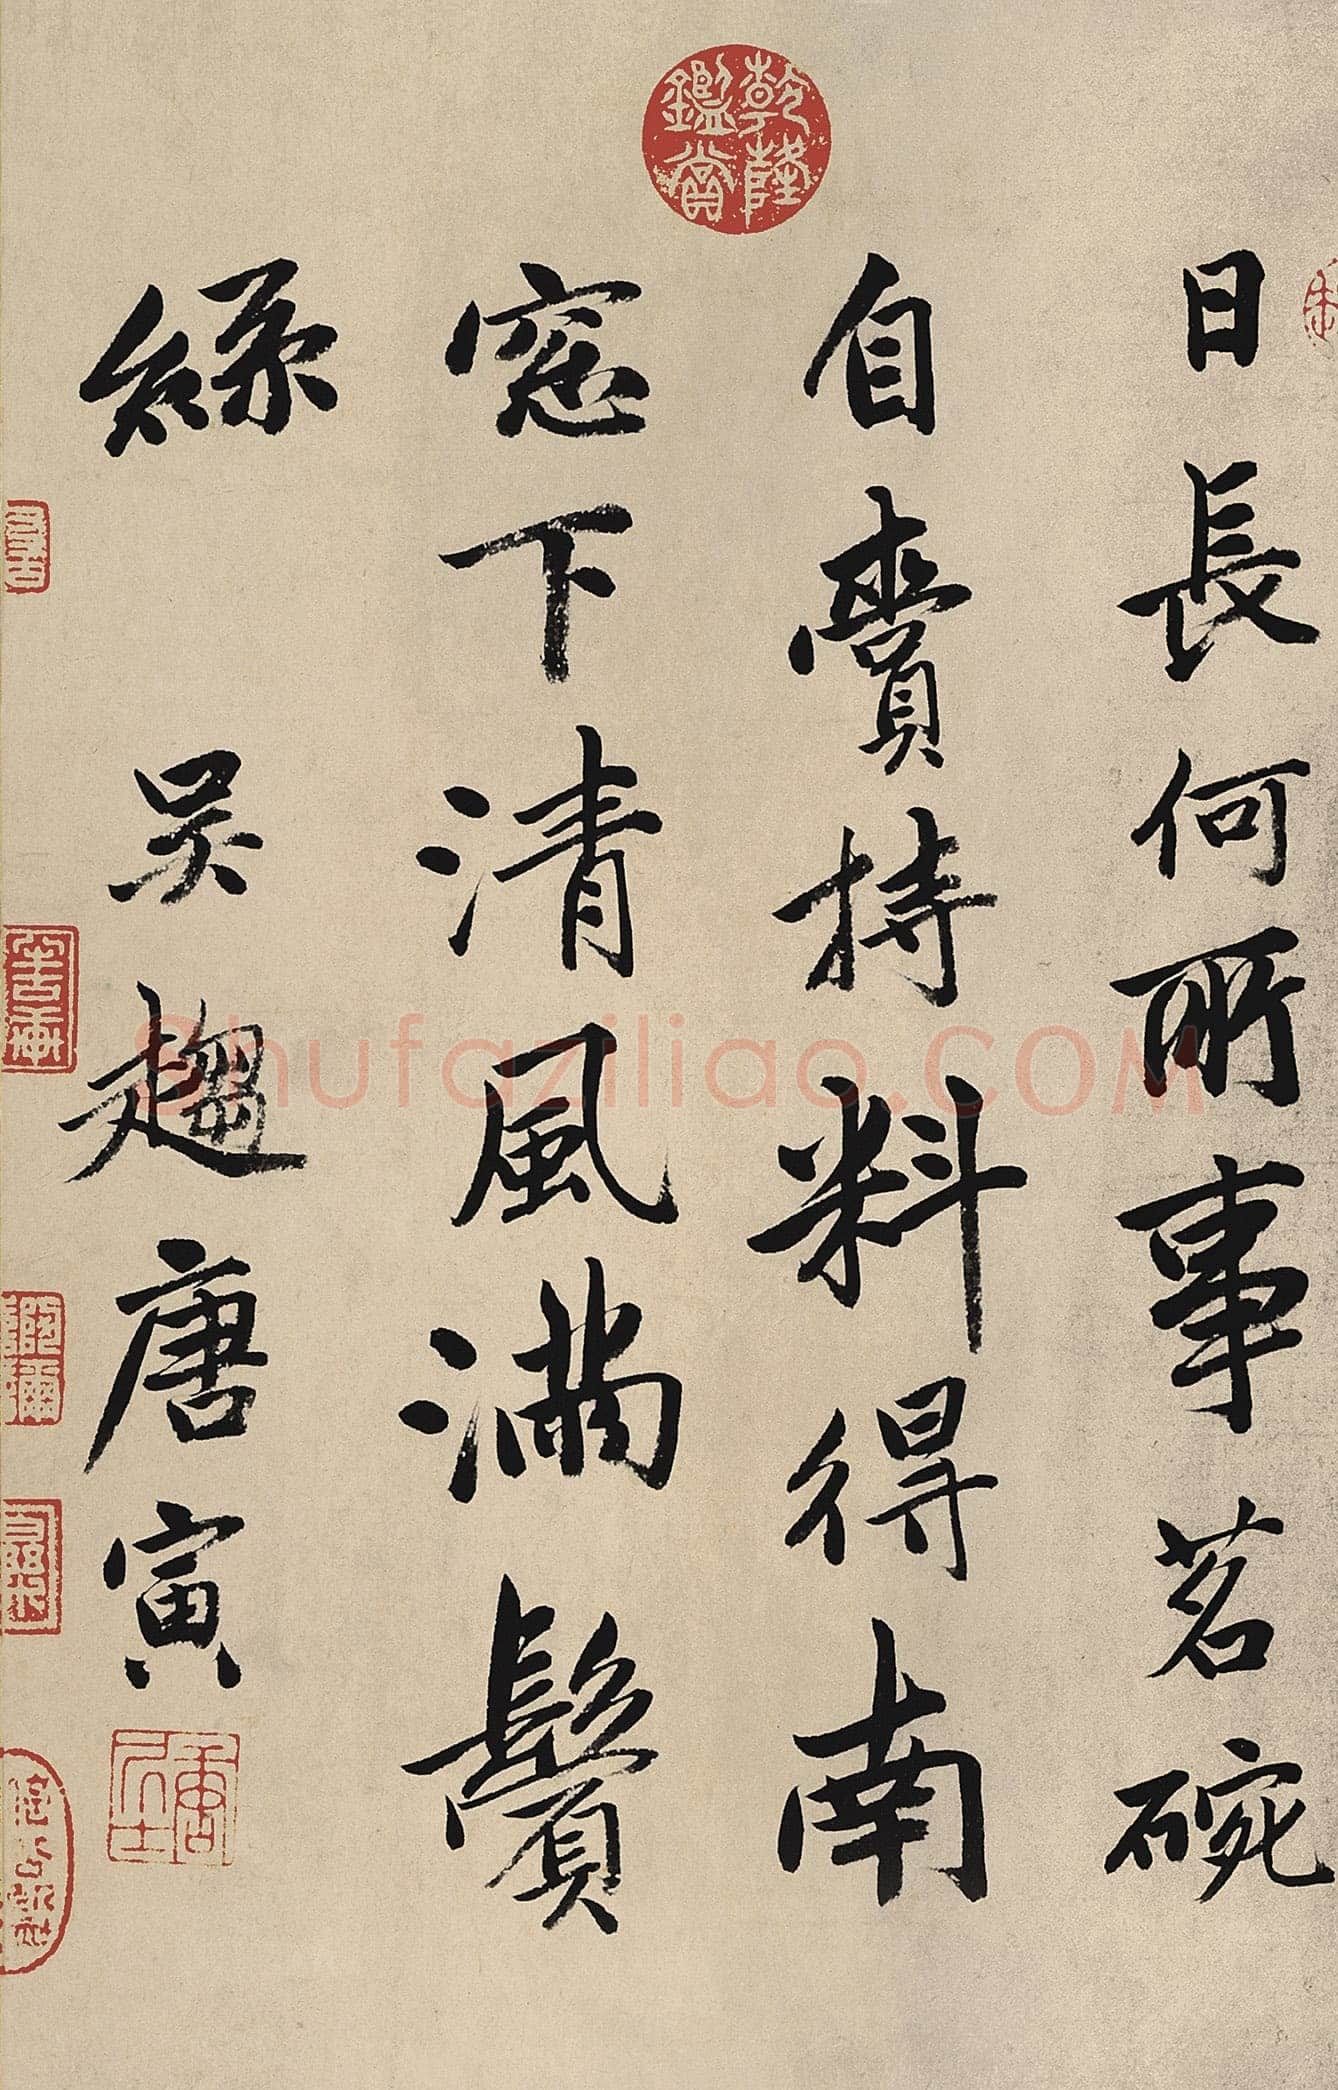 日長何所事茗碗
自賫持料得南
窓下清風滿鬢
絲 吳趨唐寅
乾隆鑑賞
Shufaziliao.COM